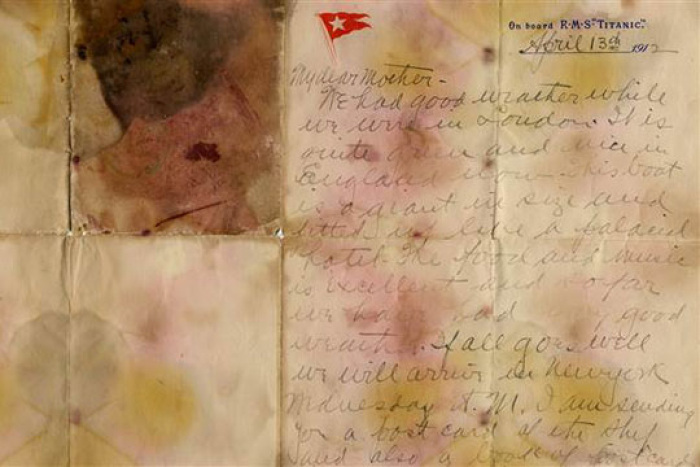 On board R·M·S·"TITANIC".
April 13th 1912
My dear Mother-
We had good weather while
we were in London. It is
quite green and nice in
England now. This boat
is a giant in size and
fitted up like a palacial
hotel. The food and music
is excellent and so far
we have had very good
weather. If all goes well
we will arrive in New York
Wednesday A.M. I am sending
you a post card of the ship
and also a book of postcards